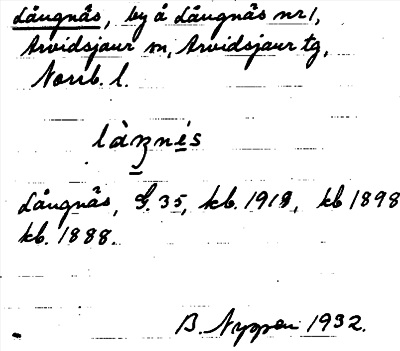 Långnäs, by å Långnäs nr 1,
Arvidsjaur sn, Arvidsjaur tg,
Norrb. l.
Långnäs, G. 35, kb. 1918, kb 1898
kb. 1888.
B. Nyppen 1932.